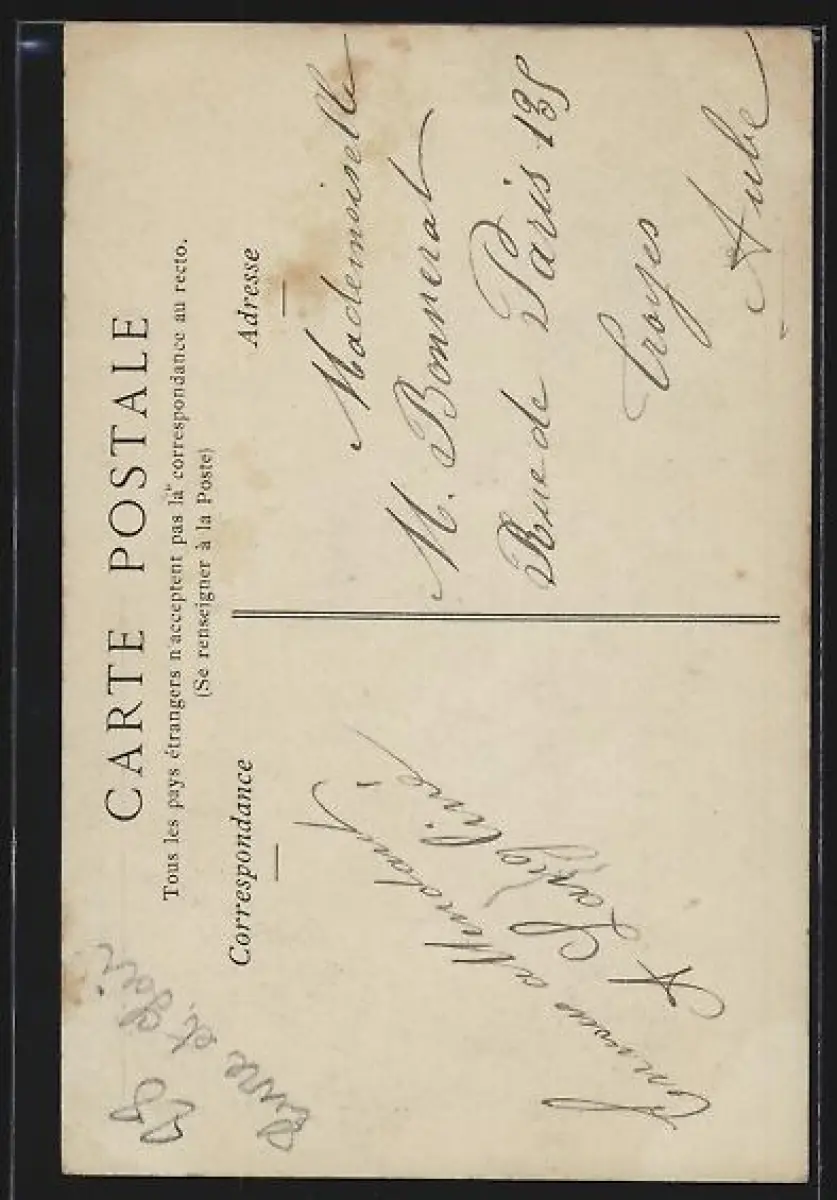 CARTE POSTALE
Tous les pays étrangers n'acceptent pas la correspondance au recto.
(Se renseigner à la Poste)
Correspondance
Adresse
28
Eure et Loir
en attendant
A
Mademoiselle
M. Bonnerat
Rue de Paris 135
Troyes
Aube